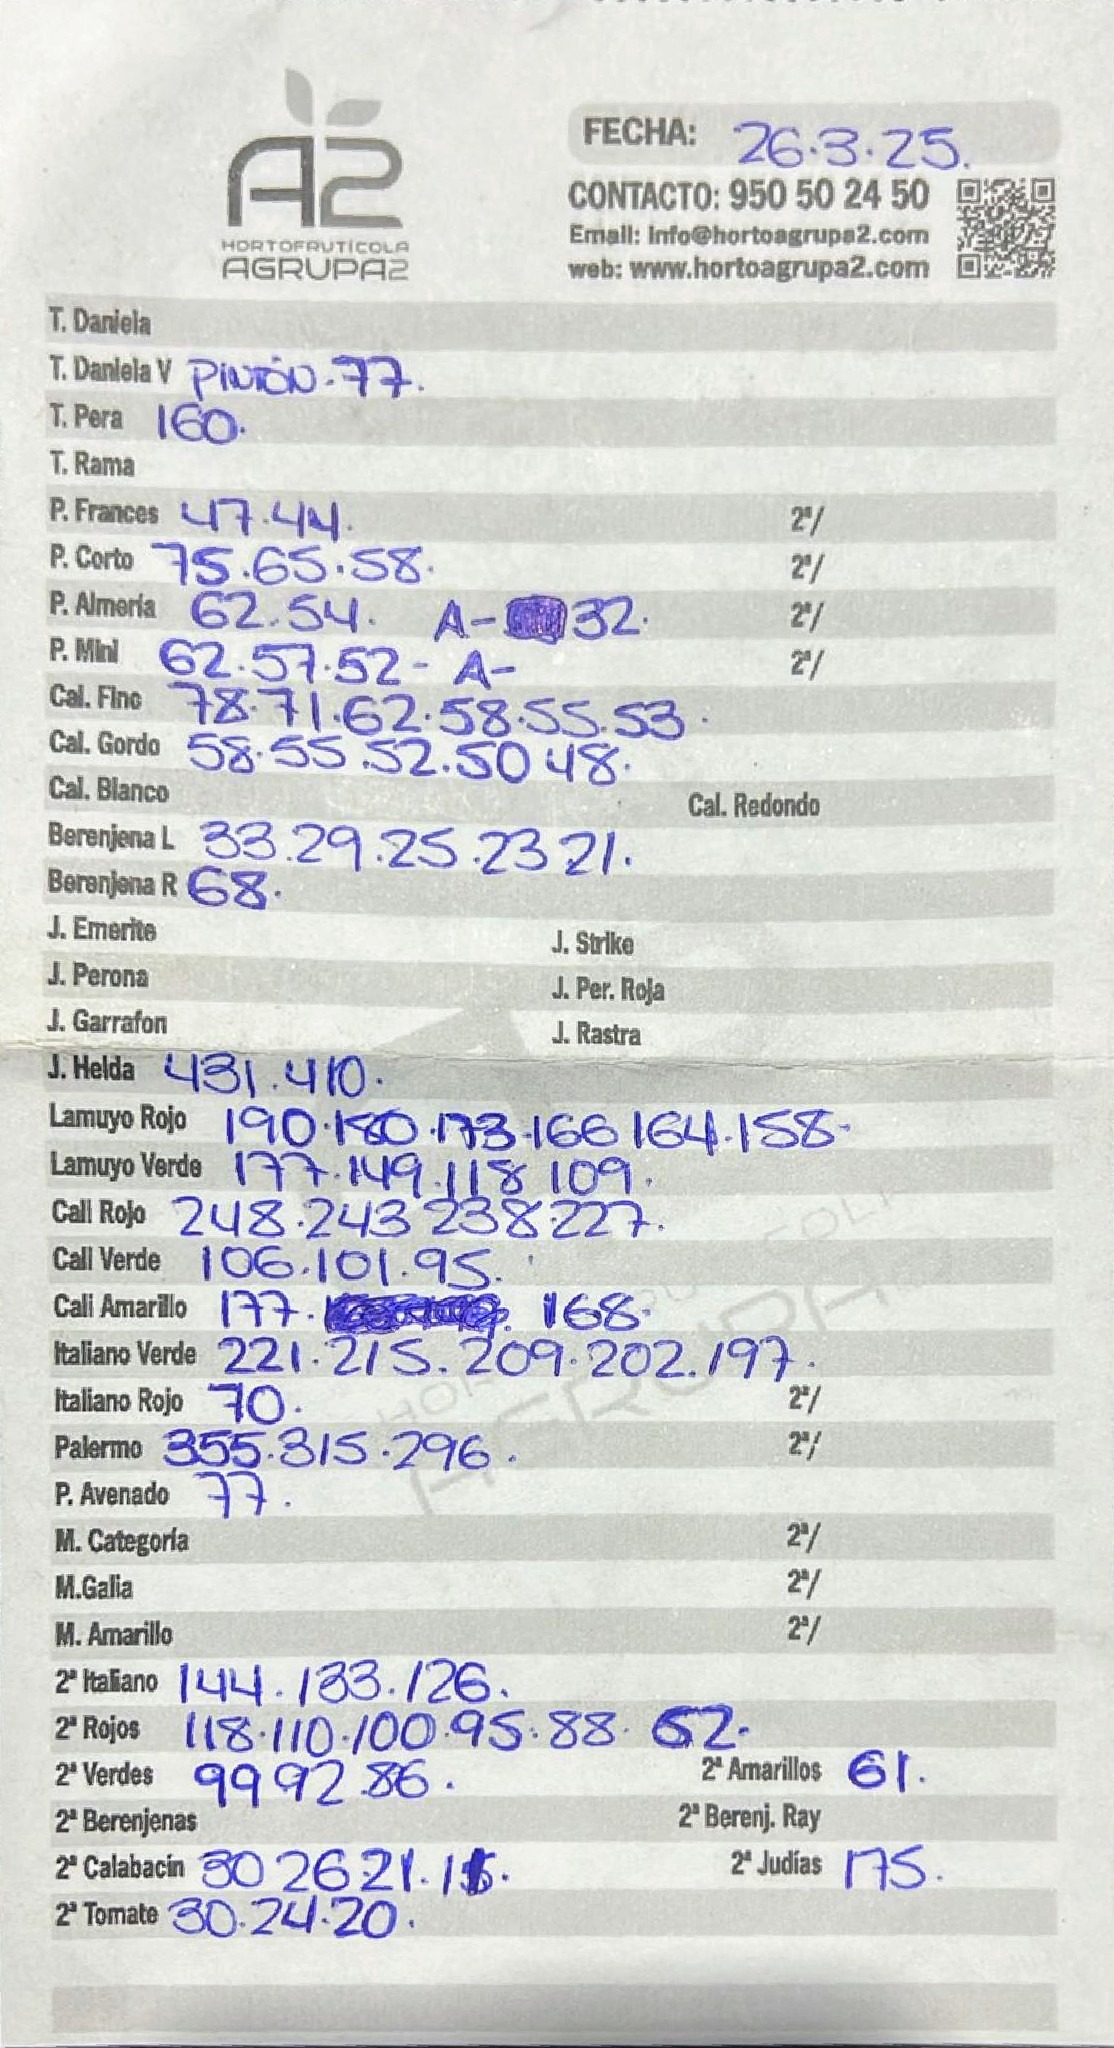 A2
HORTOFRUTÍCOLA
AGRUPA2
FECHA: 26.3.25.
CONTACTO: 950 50 24 50
Email: info@hortoagrupa2.com
web: www.hortoagrupa2.com
T. Daniela
T. Daniela V PINTÓN.77.
T. Pera 160.
T. Rama
P. Frances 47.44. 2ª/
P. Corto 75.65.58. 2ª/
P. Almería 62.54. A- 32. 2ª/
P. Mini 62.57.52- A- 2ª/
Cal. Fino 78.71.62.58.55.53.
Cal. Gordo 58.55.52.50 48.
Cal. Blanco Cal. Redondo
Berenjena L 33.29.25.23 21.
Berenjena R 68.
J. Emerite J. Strike
J. Perona J. Per. Roja
J. Garrafon J. Rastra
J. Helda 431.410.
Lamuyo Rojo 190.180.173.166 164.158.
Lamuyo Verde 177.149.118 109.
Cali Rojo 248.243 238.227.
Cali Verde 106.101.95.
Cali Amarillo 177. 168.
Italiano Verde 221.215.209.202.197.
Italiano Rojo 70. 2ª/
Palermo 355.315.296. 2ª/
P. Avenado 77.
M. Categoría 2ª/
M.Galia 2ª/
M. Amarillo 2ª/
2ª Italiano 144.133.126.
2ª Rojos 118.110.100.95.88. 62.
2ª Verdes 99 92.86. 2ª Amarillos 61.
2ª Berenjenas 2ª Berenj. Ray
2ª Calabacín 30 26 21. 2ª Judías 175.
2ª Tomate 30.24.20.